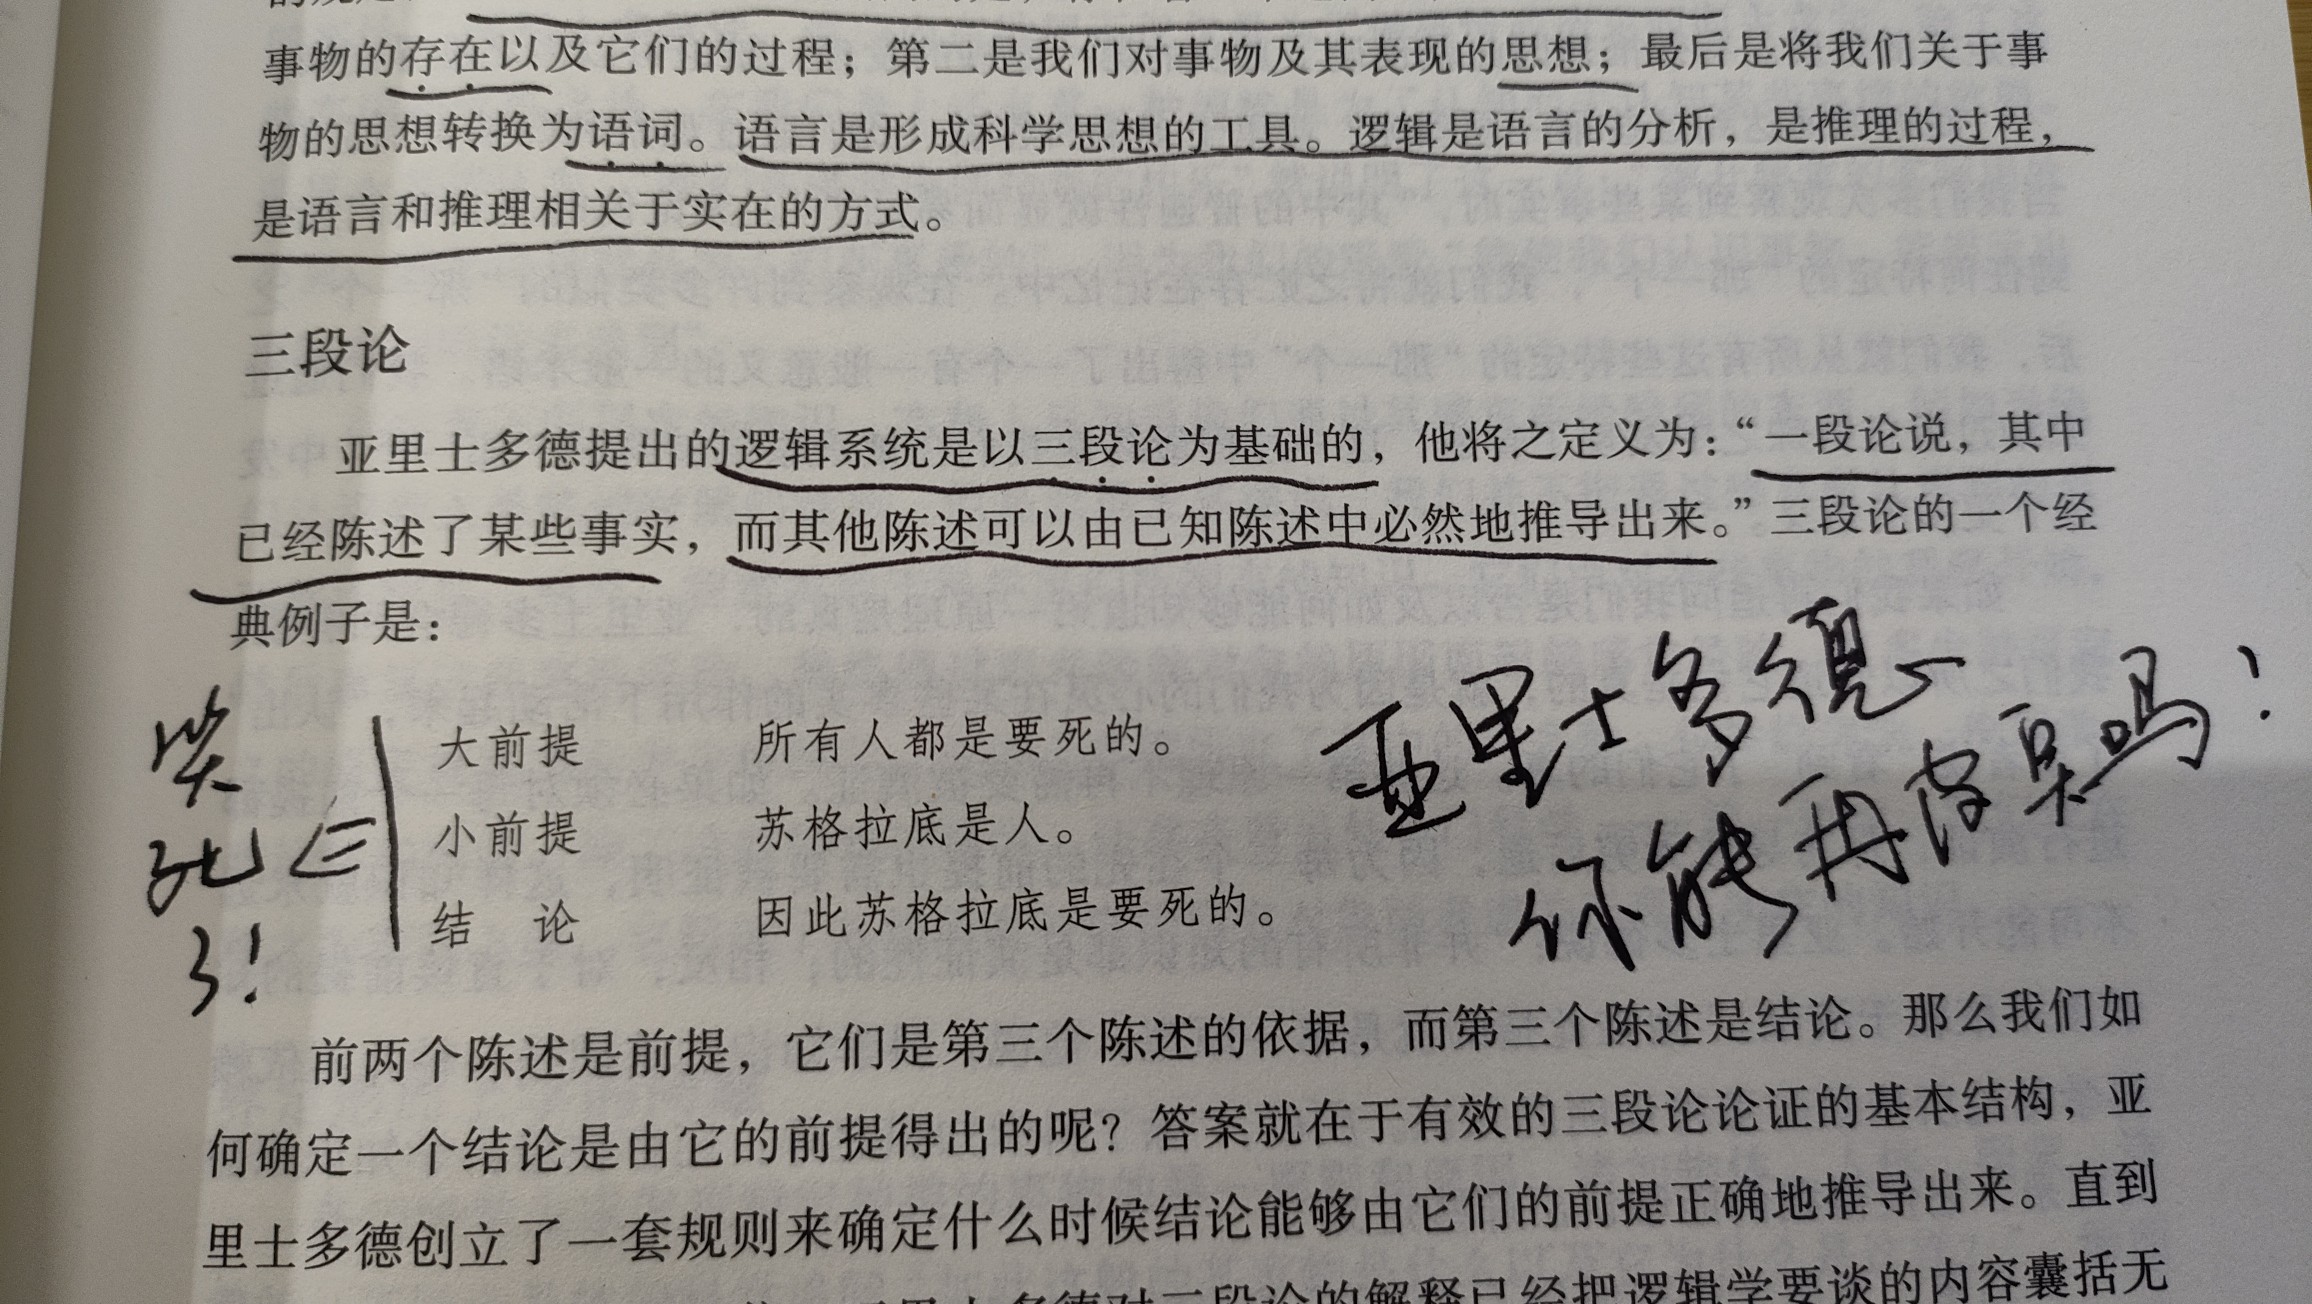 事物的存在以及它们的过程；第二是我们对事物及其表现的思想；最后是将我们关于事
物的思想转换为语词。语言是形成科学思想的工具。逻辑是语言的分析，是推理的过程，
是语言和推理相关于实在的方式。
三段论
亚里士多德提出的逻辑系统是以三段论为基础的，他将之定义为：“一段论说，其中
已经陈述了某些事实，而其他陈述可以由已知陈述中必然地推导出来。”三段论的一个经
典例子是：
大前提 所有人都是要死的。
小前提 苏格拉底是人。
结 论 因此苏格拉底是要死的。
笑
死
了！
亚里士多德
你能再皮点吗！
前两个陈述是前提，它们是第三个陈述的依据，而第三个陈述是结论。那么我们如
何确定一个结论是由它的前提得出的呢？答案就在于有效的三段论论证的基本结构，亚
里士多德创立了一套规则来确定什么时候结论能够由它们的前提正确地推导出来。直到
对三段论的解释已经把逻辑学要谈的内容囊括无